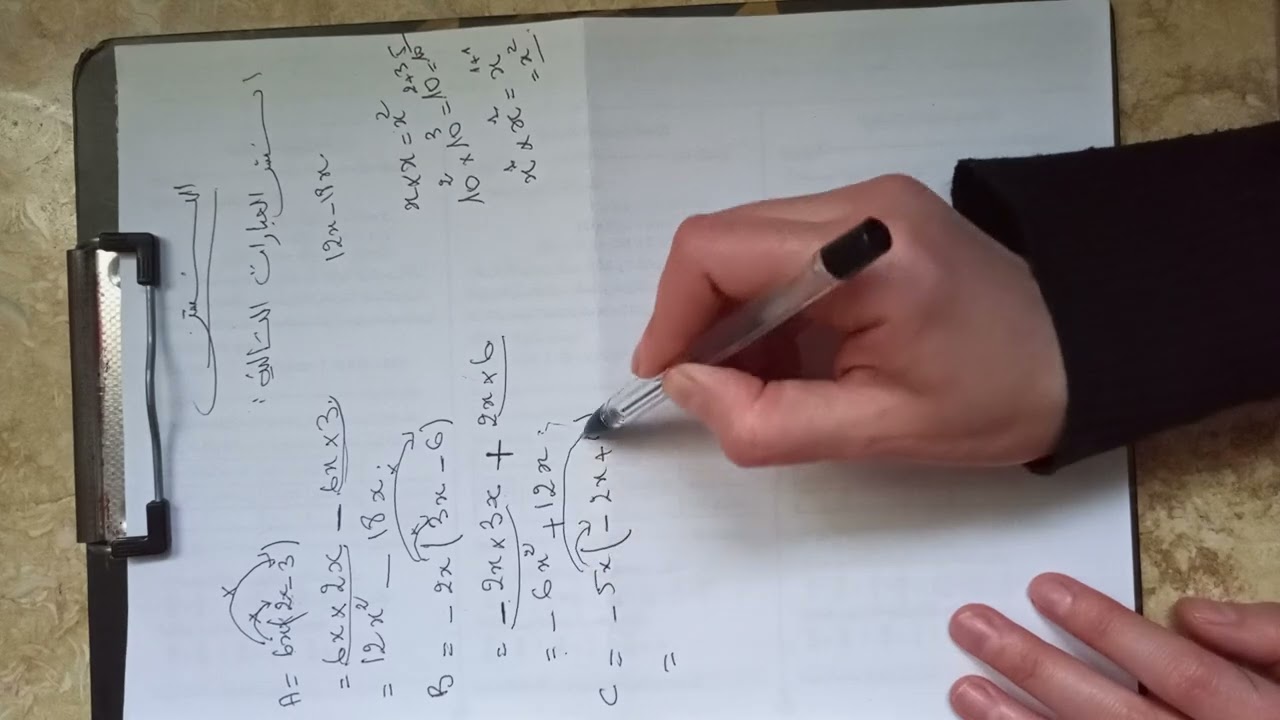 النشر
انشر العبارات التالية:
A = 6x(2x-3)
= 6x × 2x - 6x × 3
= 12x² - 18x.
12x-18x
B = -2x(3x-6)
= -2x × 3x + 2x × 6
= -6x² + 12x
C = -5x(-2x+
=
x × x = x²
10² × 10³ = 10²⁺³ = 10⁵
x¹ × x¹ = x¹⁺¹
= x²